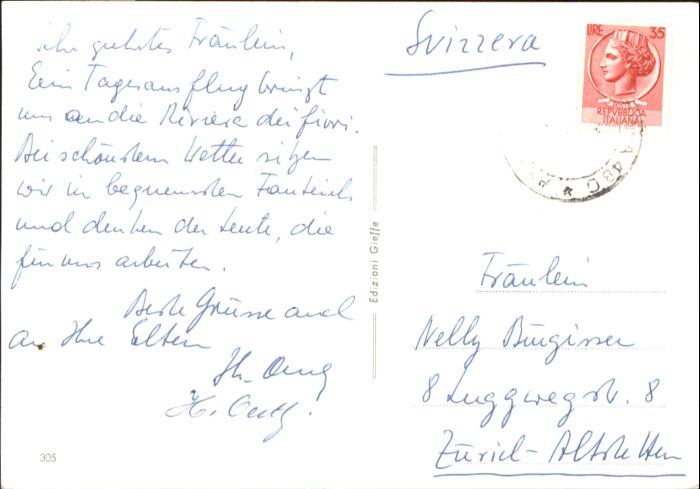 Sehr geehrtes Fräulein,
Ein Tagesausflug bringt
uns an die Riviera dei fiori.
Bei schönstem Wetter sitzen
wir in bequemsten Fauteuils
und denken der Leute, die
für uns arbeiten.
Beste Grüsse auch
an Ihre Eltern
H. Oertly.
305
Edizioni Gieffe
Svizzera
LIRE 35
REPVBBLICA
ITALIANA
Fräulein
Nelly Bürgisser
8 Luggwegstr. 8
Zürich-Altstetten